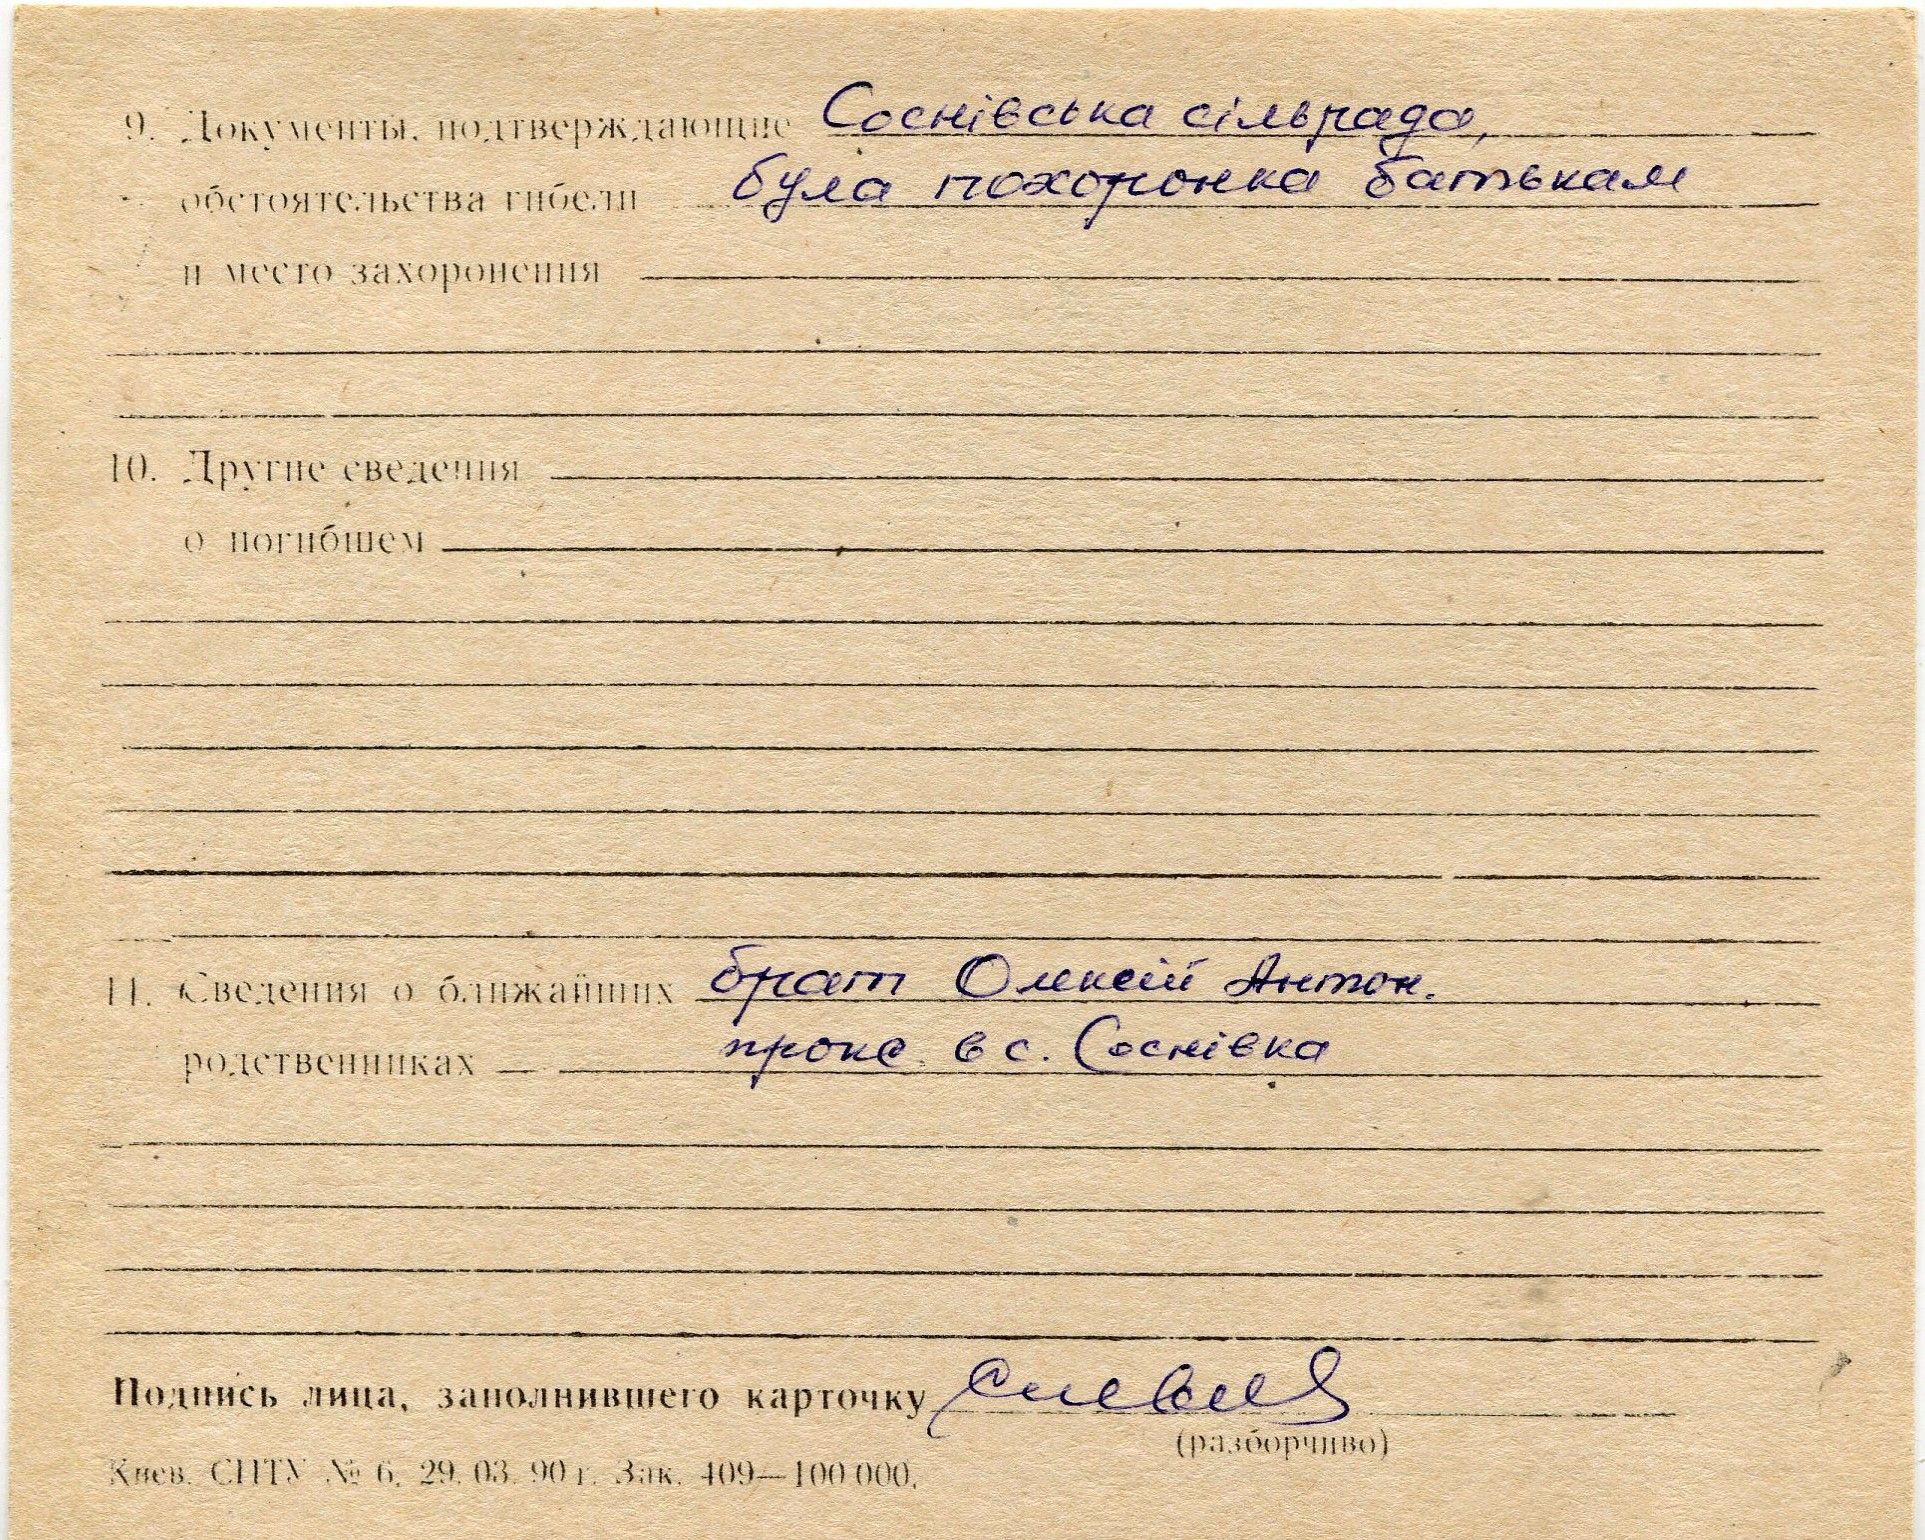 9. Документы, подтверждающие Соснівська сільрада,
обстоятельства гибели була похоронка батькам
и место захоронения
10. Другие сведения
о погибшем
11. Сведения о ближайших брат Олексій Антон.
родственниках прож. в с. Соснівка
Подпись лица, заполнившего карточку
(разборчиво)
Киев. СПТУ № 6. 29. 03. 90 г. Зак. 409—100 000.